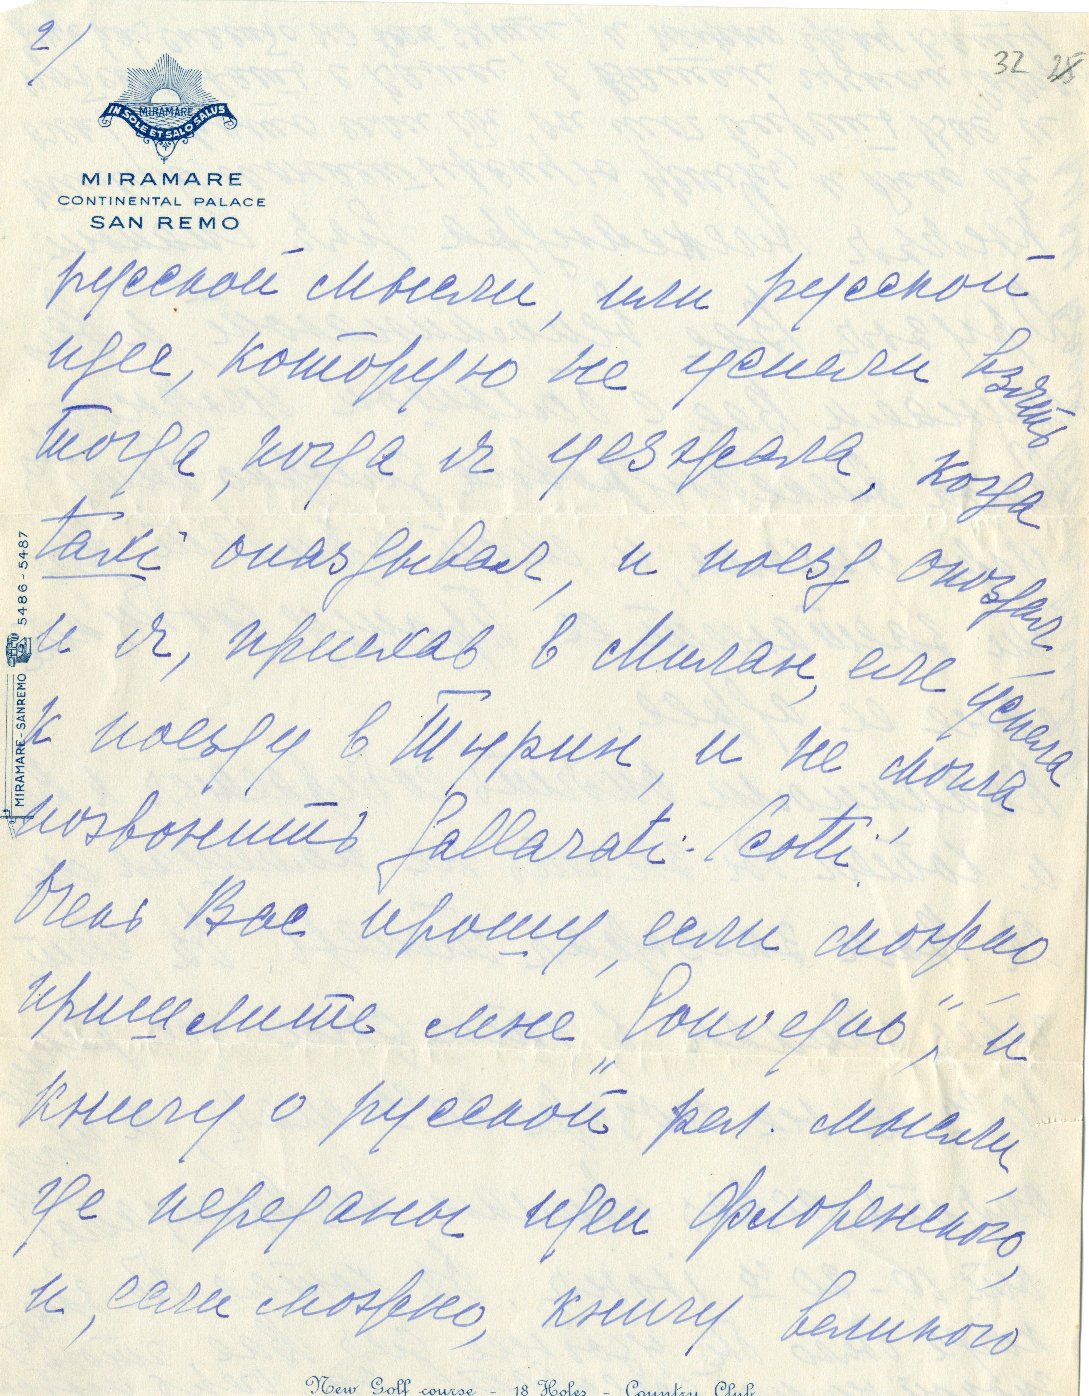 2/
32 25
MIRAMARE
IN SOLE ET SALO SALUS
MIRAMARE
CONTINENTAL PALACE
SAN REMO
русской мысли, или русской
идее, которую не успели взять
тогда, когда я уезжала, когда
taxi опаздывал, и поезд опоздал,
и я, приехав в Милан, еле успела
к поезду в Турин, и не могла
позвонить Gallarati-Scotti.
Очень Вас прошу, если можно
пришлите мне „Convegno", и
книгу о русской рел. мысли,
где переданы идеи Флоренского,
и, если можно, книгу великого
MIRAMARE-SANREMO 5486-5487
New Golf course - 18 Holes - Country Club